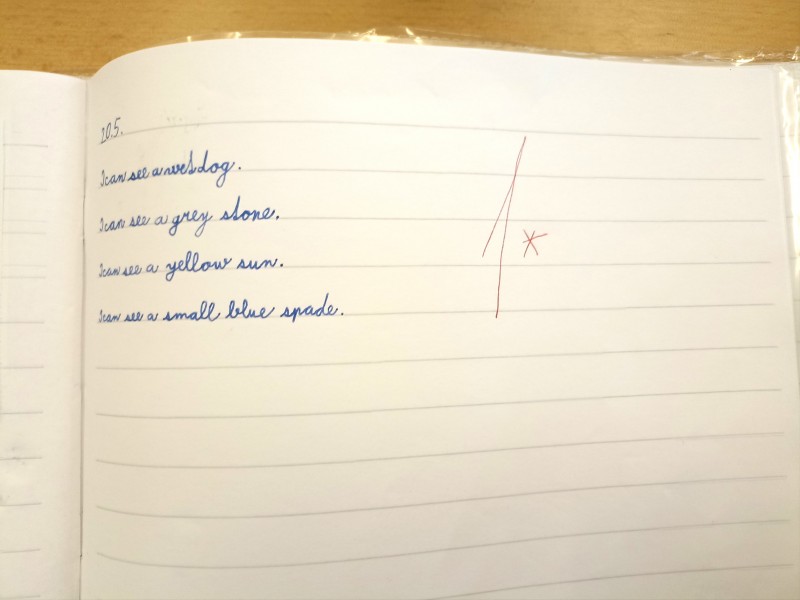 20.5.
I can see a wet dog.
I can see a grey stone.
I can see a yellow sun.
I can see a small blue spade.
1*